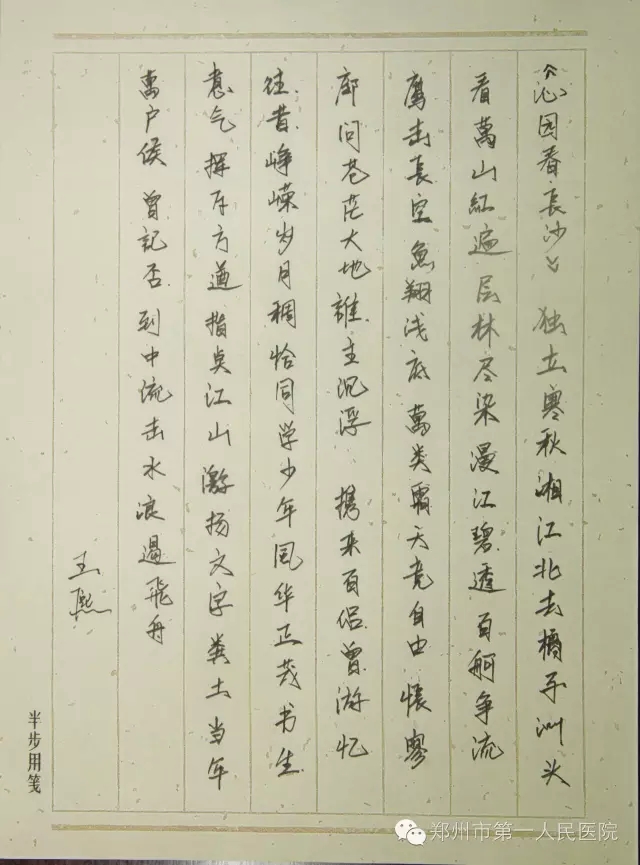 《沁园春长沙》 独立寒秋湘江北去橘子洲头
看萬山紅遍层林尽染漫江碧透百舸争流
鹰击長空魚翔浅底萬类霜天竞自由悵寥
廓问苍茫大地誰主沉浮 携来百侣曾游忆
往昔峥嵘岁月稠恰同学少年风华正茂书生
意气挥斥方遒指点江山激扬文字粪土当年
萬户侯曾記否到中流击水浪遏飛舟
王熙
半步用笺
郑州市第一人民医院